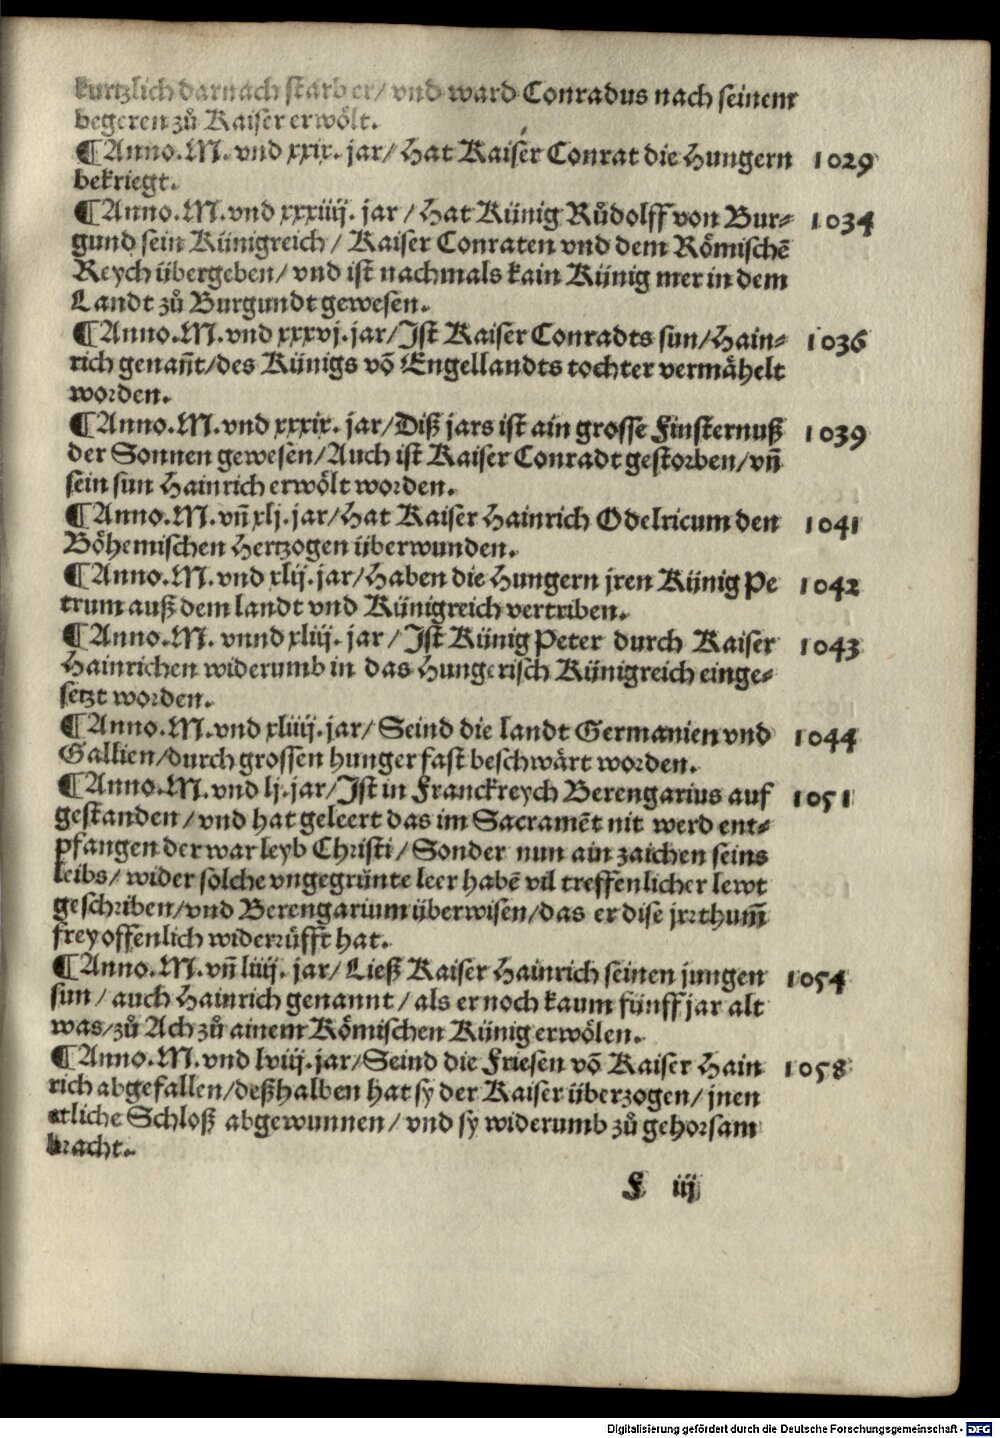 kurtzlich darnach starb er/ vnd ward Conradus nach seinem
begeren zů Kaiser erwölt.
¶Anno.M.vnd xxix. jar/ Hat Kaiser Conrat die Hungern 1029
bekriegt.
¶Anno.M.vnd xxxiiij. jar / Hat Künig Růdolff von Bur- 1034
gund sein Künigreich / Kaiser Conraten vnd dem Römischē
Reych übergeben/ vnd ist nachmals kain Künig mer in dem
Landt zů Burgundt gewesen.
¶Anno.M.vnd xxxvj.jar/Ist Kaiser Conradts sun/Hain- 1036
rich genañt/des Künigs vō Engellandts tochter vermähelt
worden.
¶Anno.M.vnd xxxix. jar/Diß jars ist ain grosse Finsternuß 1039
der Sonnen gewesen/Auch ist Kaiser Conradt gestorben/vñ
sein sun Hainrich erwölt worden.
¶Anno.M.vñ xlj.jar/Hat Kaiser Hainrich Odelricum den 1041
Böhemischen Hertzogen überwunden.
¶Anno.M.vnd xlij.jar/Haben die Hungern jren Künig Pe 1042
trum auß dem landt vnd Künigreich vertriben.
¶Anno.M. vnnd xliij. jar / Ist Künig Peter durch Kaiser 1043
Hainrichen widerumb in das Hungerisch Künigreich einge-
setzt worden.
¶Anno.M.vnd xliiij.jar/ Seind die landt Germanien vnd 1044
Gallien/durch grossen hunger fast beschwärt worden.
¶Anno.M.vnd lj.jar/Ist in Franckreych Berengarius auf 1051
gestanden / vnd hat geleert das im Sacramēt nit werd ent-
pfangen der war leyb Christi / Sonder nun ain zaichen seins
leibs/ wider solche vngegrünte leer habē vil treffenlicher lewt
geschriben/vnd Berengarium überwisen/das er dise jrrthum̄
frey offenlich widerrüfft hat.
¶Anno.M.vñ liiij. jar/ Ließ Kaiser Hainrich seinen jungen 1054
sun / auch Hainrich genannt / als er noch kaum fünff jar alt
was/zů Ach zů ainem Römischen Künig erwölen.
¶Anno.M.vnd lviij.jar/Seind die Friesen vō Kaiser Hain 1058
rich abgefallen/deßhalben hat sy der Kaiser überzogen/ jnen
etliche Schloß abgewunnen/ vnd sy widerumb zů gehorsam
bracht.
F iij
Digitalisierung gefördert durch die Deutsche Forschungsgemeinschaft - DFG